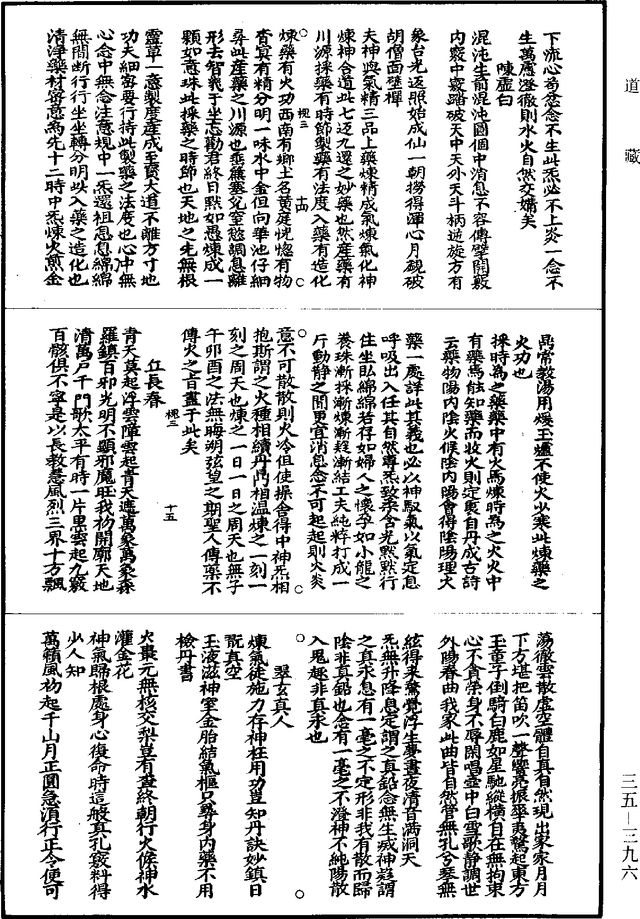 道藏
下流心苟忿念不生此炁必不上炎一念不
生萬慮澄徹則水火自然交媾矣
陳虛白
混沌生前混沌圓個中消息不容傳擘開竅
內竅中竅踏破天中天外天斗柄逆旋方有
象台光返照始成仙一朝撈得潭心月覷破
胡僧面壁禪
夫神與氣精三品上藥煉精成氣煉氣化神
煉神合道此七返九還之妙藥也然產藥有
川源採藥有時節製藥有法度入藥有造化
十四
煉藥有火功西南有鄉土名黃庭恍惚有物
杳冥有精分明一味水中金但向華池仔細
尋此產藥之川源也垂簾塞兌窒慾調息離
形去智幾于坐忘勸君終日默如愚煉成一
顆如意珠此採藥之時節也天地之先無根
靈草一意製度產成至寶大道不離方寸地
功夫細密要行持此製藥之法度也心中無
心念中無念注意規中一炁還祖息息綿綿
無間斷行行坐坐轉分明此入藥之造化也
清淨藥材密意為先十二時中炁煉火煎金
鼎常教湯用煖玉爐不使火少寒此煉藥之
火功也
採時為之藥藥中有火焉煉時為之火火中
有藥焉能知藥而收火則定裏自丹成古詩
云藥物陽內陰火候陰內陽會得陰陽理火
藥一處詳此其義也必以神馭氣以氣定息
呼吸出入任其自然專炁致柔含光默默行
住坐臥綿綿若存如婦人之懷孕如小龍之
養珠漸採漸煉漸凝漸結工夫純粹打成一
斤動靜之間更宜消息念不可起起則火炎
意不可散散則火冷但使操舍得中神炁相
抱斯謂之火種相續丹鬥相溫煉之一刻一
刻之周天也煉之一日一日之周天也無子
午卯酉之法無晦朔弦望之期聖人傳藥不
傳火之旨盡于此矣
十五
丘長春
青天莫起浮雲障雲起青天遮萬象萬象森
羅鎮百邪光明不顯邪魔旺我初開廓天地
清萬戶千門歌太平有時一片黑雲起九竅
百骸俱不寧是以長教慧風烈三界十方飄
蕩徹雲散虛空體自真自然現出家家月月
下方堪把笛吹一聲響亮振華夷驚起東方
玉童子倒騎白鹿如星馳縱橫自在無拘束
心不貪榮身不辱閑唱壺中白雪歌靜調世
外陽春曲我家此曲皆自然管無孔兮琴無
絃得來驚覺浮生夢晝夜清音滿洞天
炁無升降息定謂之真鉛念無生滅神凝謂
之真汞息有一毫之不定形非我有散而歸
陰非真鉛也念有一毫之不澄神不純陽散
入鬼趣非真汞也
翠玄真人
煉氣徒施力存神枉用功豈知丹訣妙鎮日
翫真空
玉液滋神室金胎結氣樞只尋身內藥不用
檢丹書
火棗元無核交梨豈有查終朝行火候神水
灌金花
神氣歸根處身心復命時這般真孔竅料得
少人知
萬籟風初起千山月正圓急須行正令便可
三五—三九六